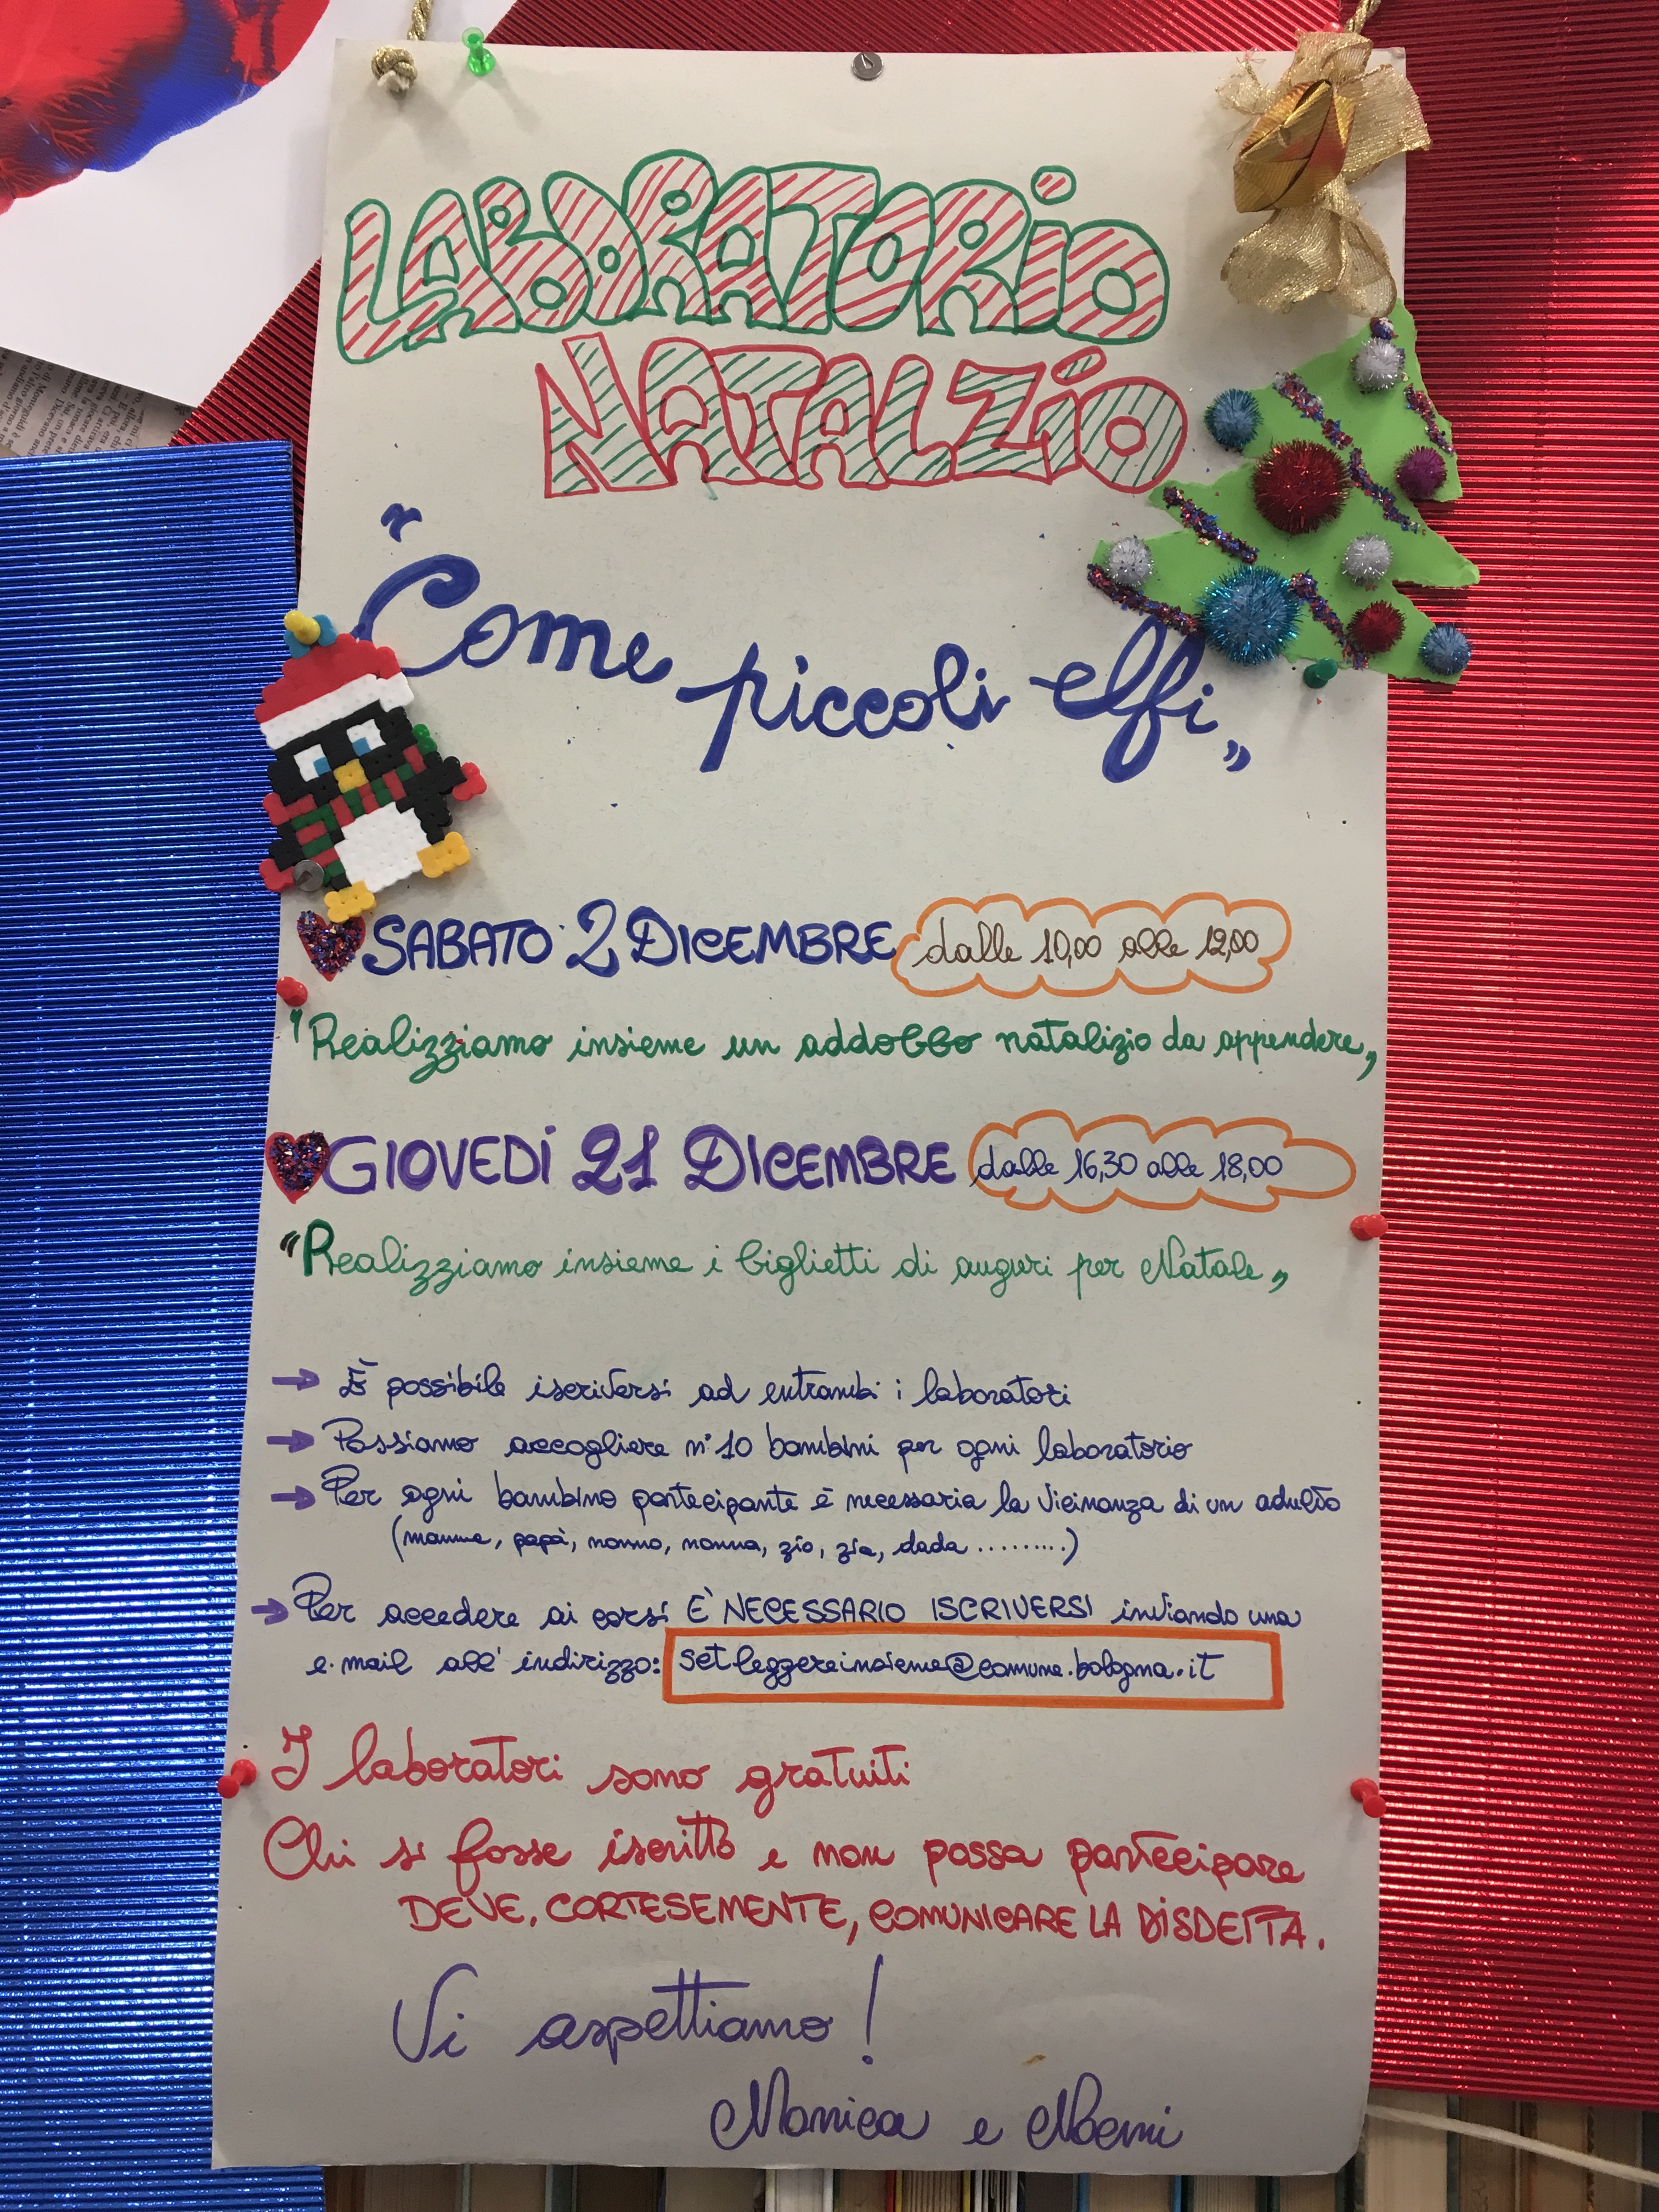 LABORATORIO
NATALZIO
"Come piccoli elfi"
SABATO 2 DICEMBRE dalle 10,00 alle 12,00
"Realizziamo insieme un addobbo natalizio da appendere"
GIOVEDÌ 21 DICEMBRE dalle 16,30 alle 18,00
"Realizziamo insieme i biglietti di auguri per Natale"
→ È possibile iscriversi ad entrambi i laboratori
→ Possiamo accogliere n° 10 bambini per ogni laboratorio
→ Per ogni bambino partecipante è necessaria la vicinanza di un adulto
(mamma, papà, nonno, nonna, zio, zia, dada .........)
→ Per accedere ai corsi È NECESSARIO ISCRIVERSI inviando una
e-mail all'indirizzo: setleggereinsieme@comune.bologna.it
I laboratori sono gratuiti
Chi si fosse iscritto e non possa partecipare
DEVE, CORTESEMENTE, COMUNICARE LA DISDETTA.
Vi aspettiamo!
Monica e Noemi